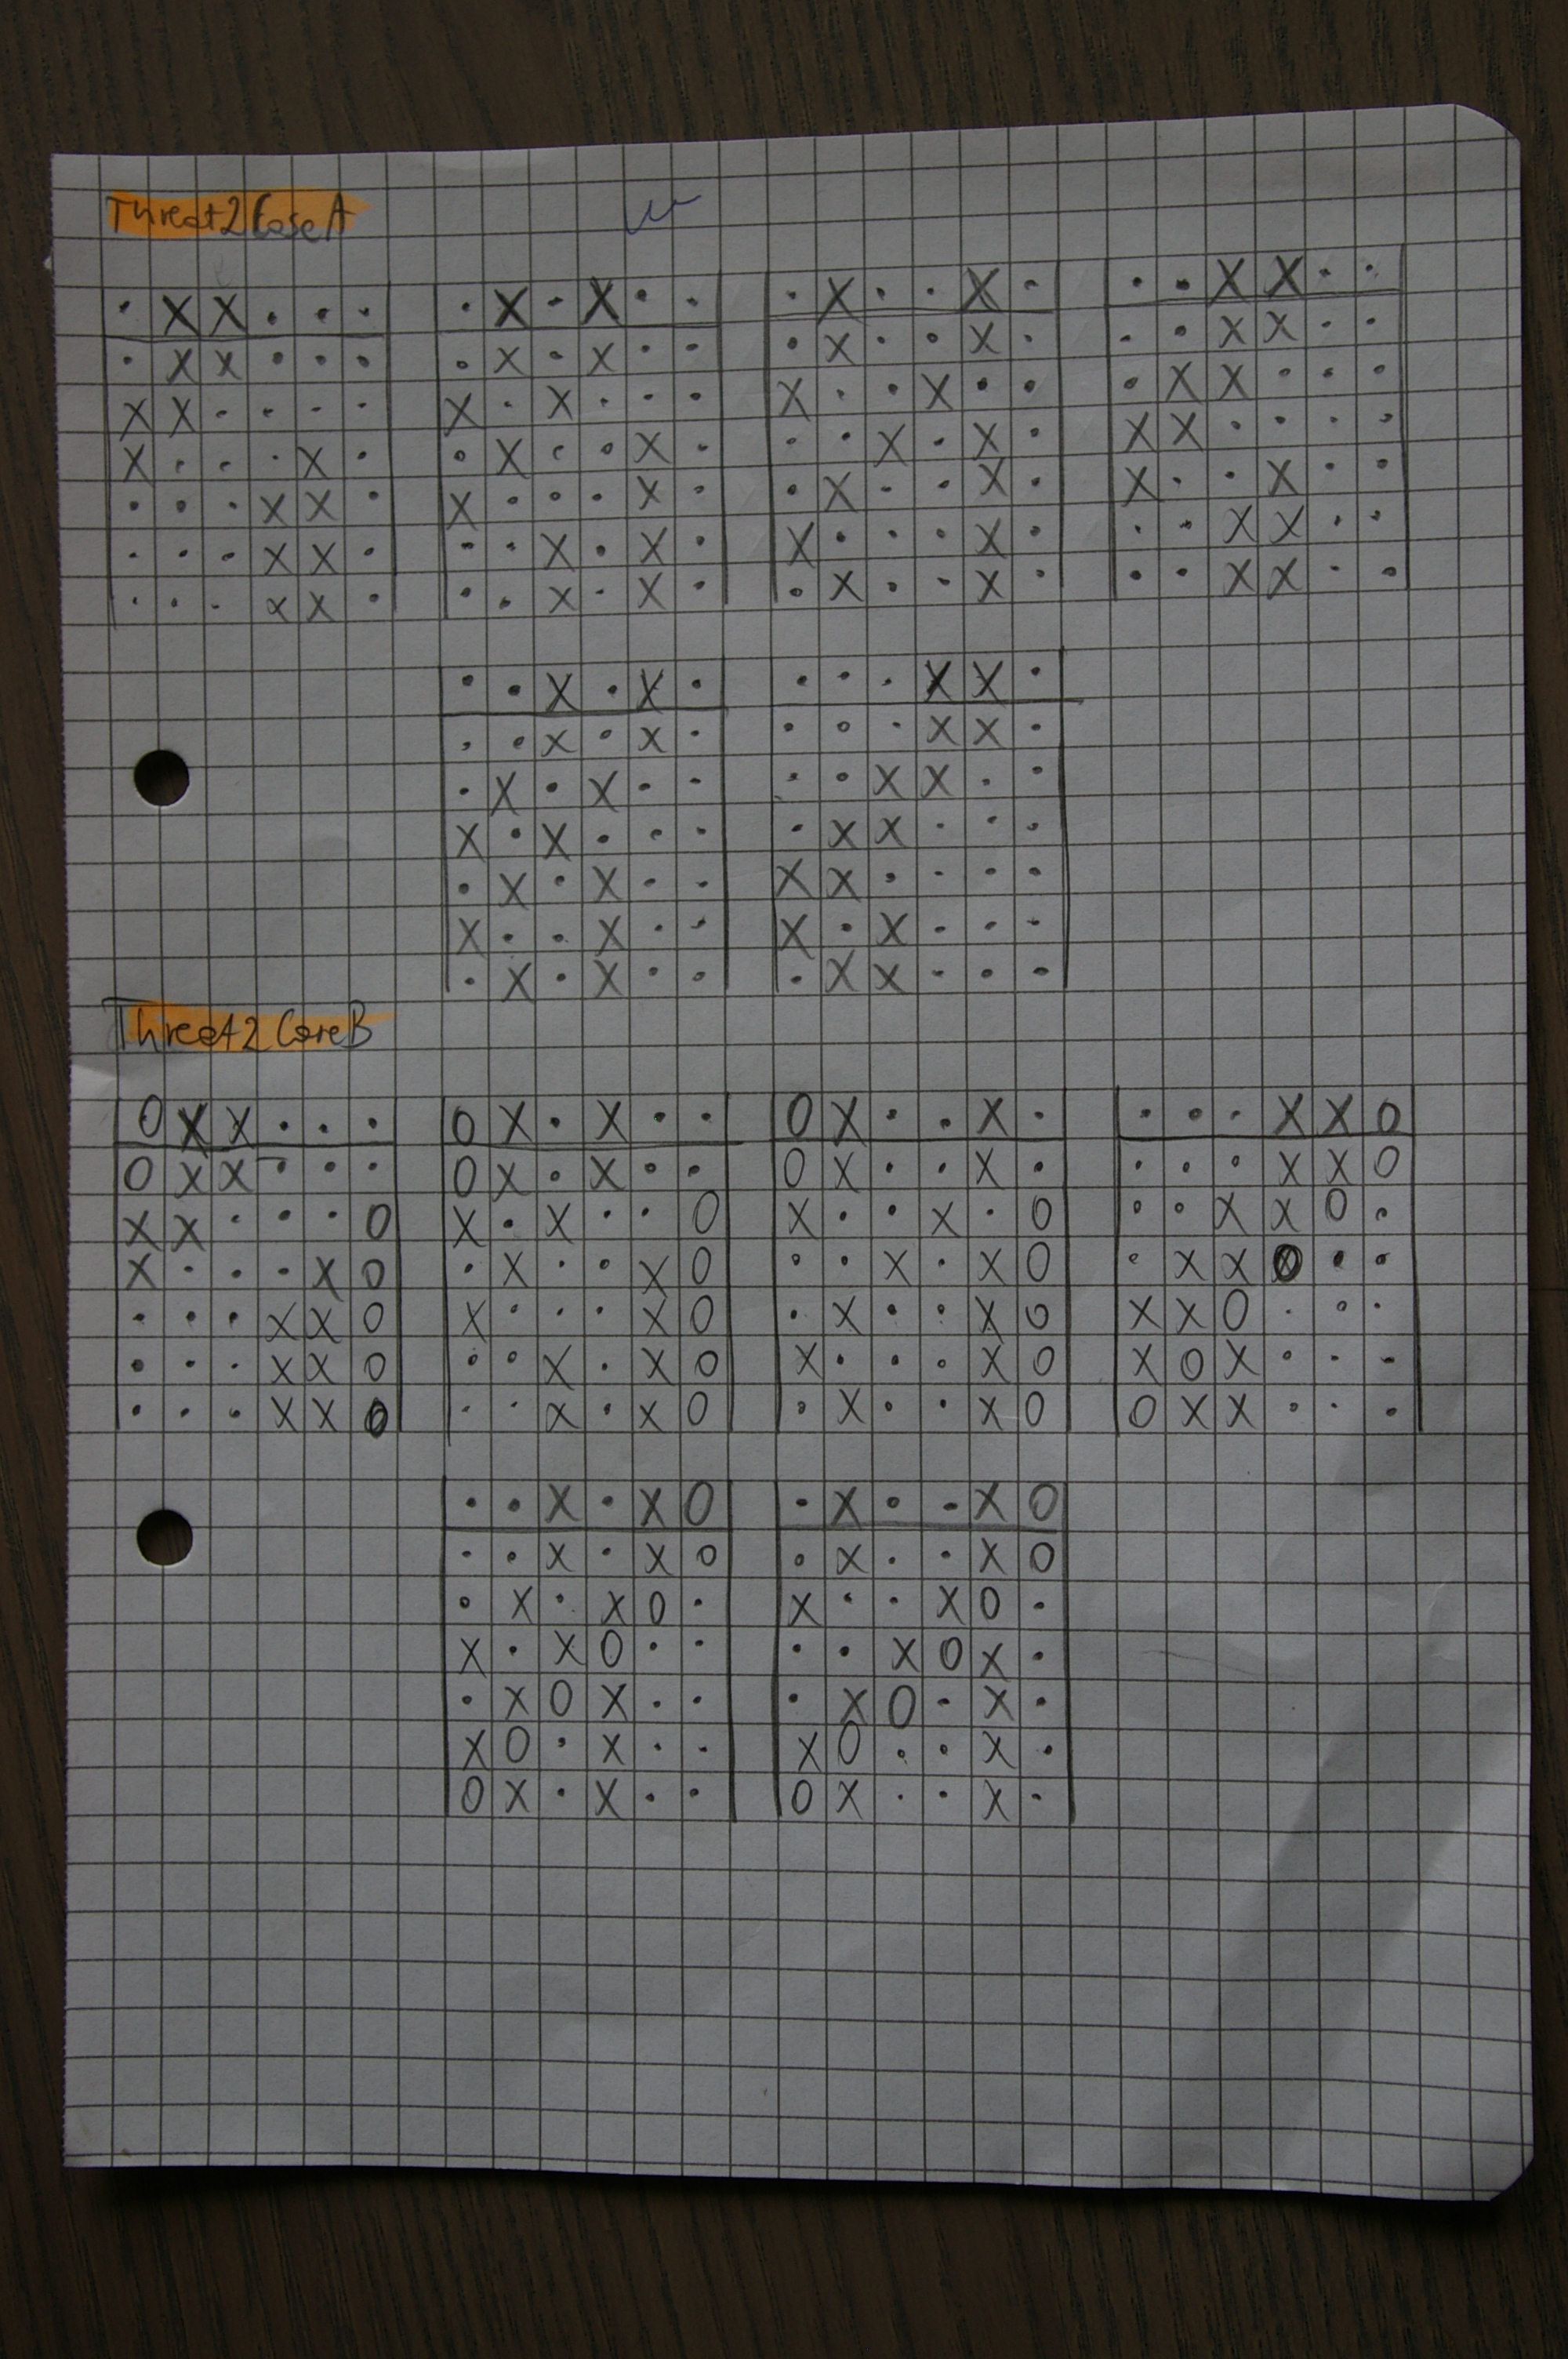 Threat2 CaseA
. X X . . . . X . X . . . X . . X . . . X X . .
. X X . . . . X . X . . . X . . X . . . X X . .
X X . . . . X . X . . . X . . X . . . X X . . .
X . . . X . . X . . X . . . X . X . X X . . . .
. . . X X . X . . . X . . X . . X . X . . X . .
. . . X X . . . X . X . X . . . X . . . X X . .
. . . X X . . . X . X . . X . . X . . . X X . .
. . X . X . . . . X X .
. . X . X . . . . X X .
. X . X . . . . X X . .
X . X . . . . X X . . .
. X . X . . X X . . . .
X . . X . . X . X . . .
. X . X . . . X X . . .
Threat2 CaseB
O X X . . . O X . X . . O X . . X . . . . X X O
O X X . . . O X . X . . O X . . X . . . . X X O
X X . . . O X . X . . O X . . X . O . . X X O .
X . . . X O . X . . X O . . X . X O . X X O . .
. . . X X O X . . . X O . X . . X O X X O . . .
. . . X X O . . X . X O X . . . X O X O X . . .
. . . X X O . . X . X O . X . . X O O X X . . .
. . X . X O . X . . X O
. . X . X O . X . . X O
. X . X O . X . . X O .
X . X O . . . . X O X .
. X O X . . . X O . X .
X O . X . . X O . . X .
O X . X . . O X . . X .